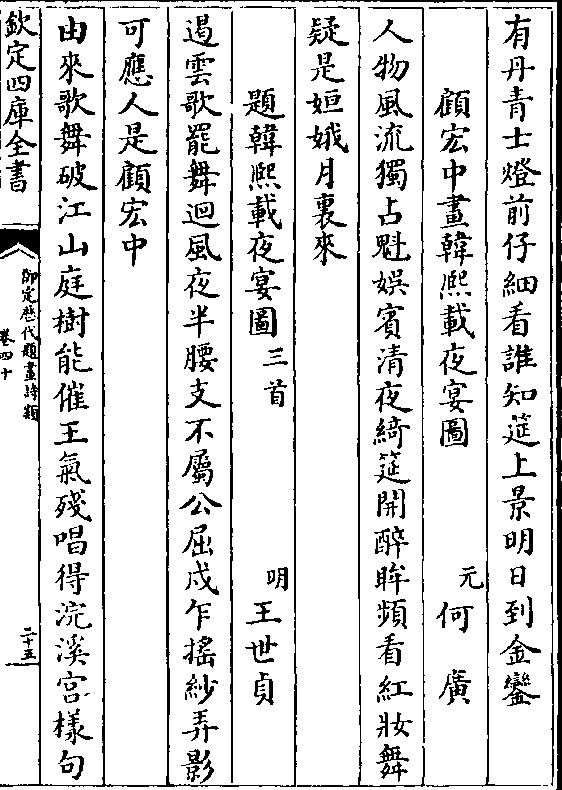 有丹青士燈前仔細看誰知筵上景明日到金鑾
顧宏中畫韓熙載夜宴圖 元 何廣
人物風流獨占魁娯賓清夜綺筵開醉眸頻看紅妝舞
疑是姮娥月裏來
題韓熙載夜宴圖 三首 明 王世貞
遏雲歌罷舞迴風夜半腰支不屬公屈戍乍搖紗弄影
可應人是顧宏中
由來歌舞破江山庭樹能催王氣殘唱得浣溪宫樣句
欽定四庫全書
御定歷代題畫詩類
卷四十
二十五